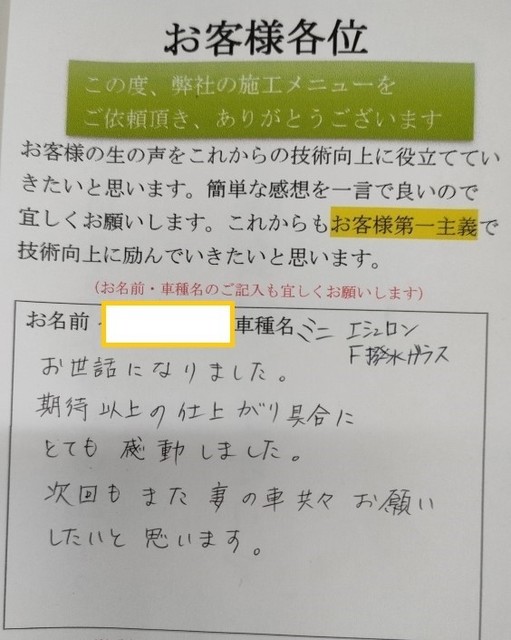 お客様各位
この度、弊社の施工メニューを
ご依頼頂き、ありがとうございます
お客様の生の声をこれからの技術向上に役立ててい
きたいと思います。簡単な感想を一言で良いので
宜しくお願いします。これからもお客様第一主義で
技術向上に励んでいきたいと思います。
(お名前・車種名のご記入も宜しくお願いします)
お名前 車種名 ミニ エシュロン
F撥水ガラス
お世話になりました。
期待以上の仕上がり具合に
とても感動しました。
次回もまた妻の車共々お願い
したいと思います。